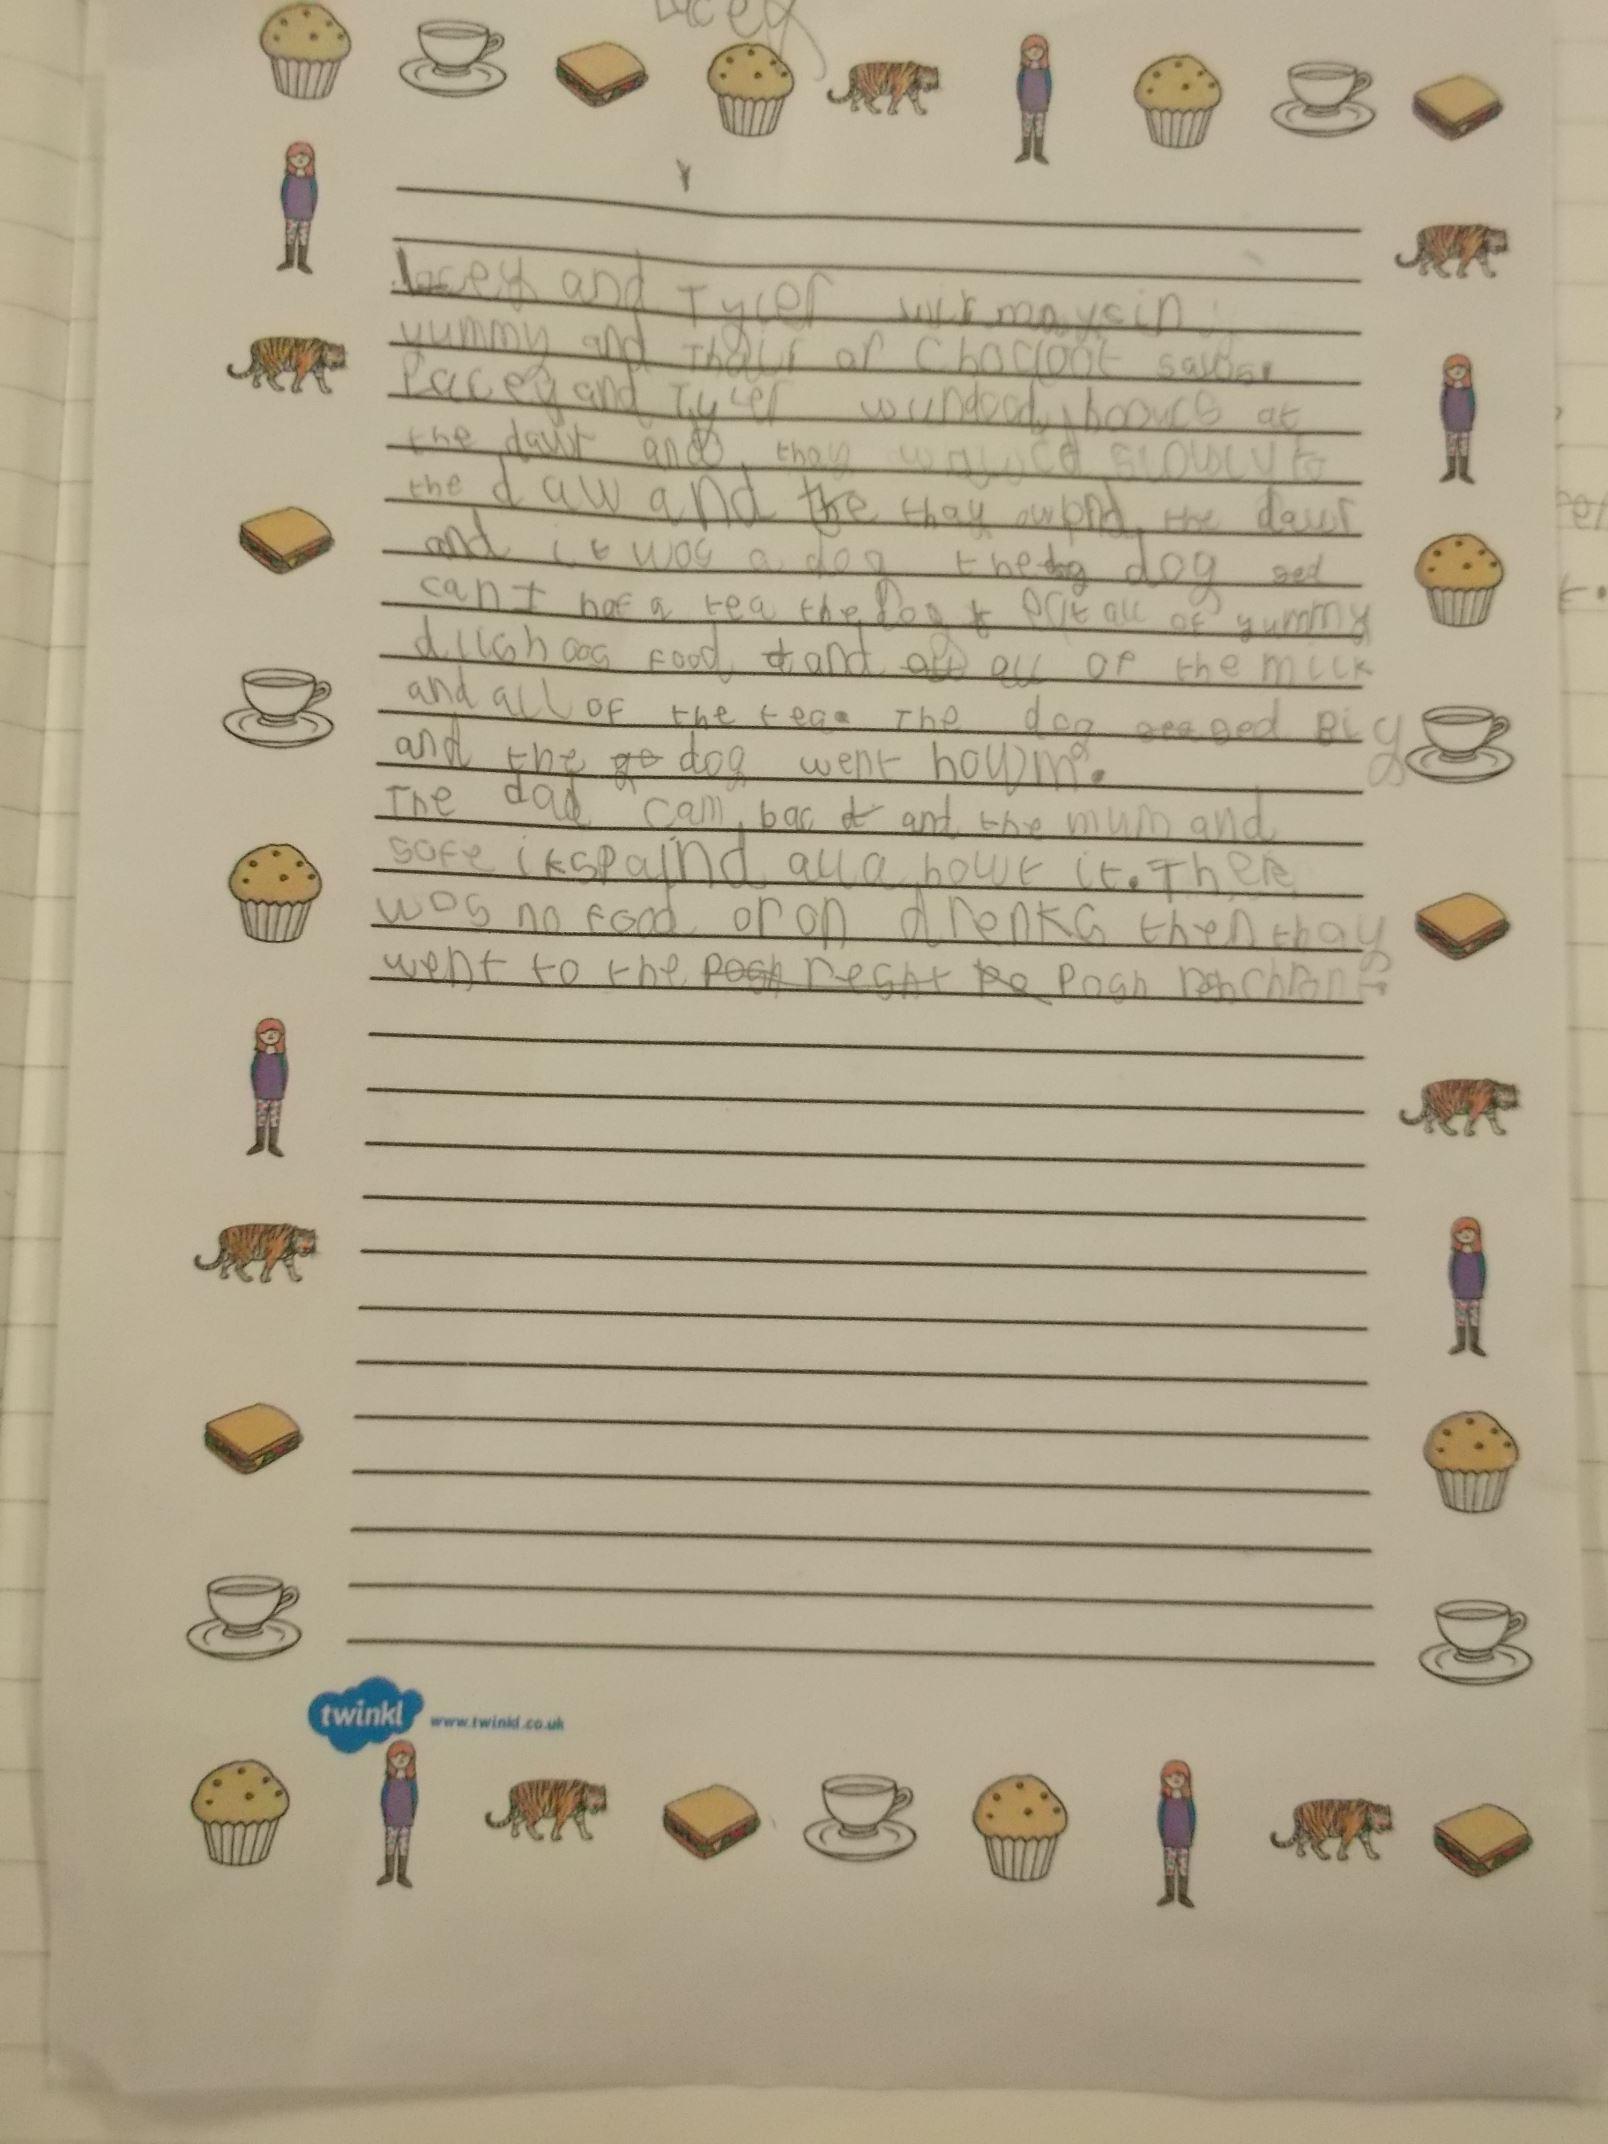 Lacey
Lacey and Tyler wir maycin
yummy and Thaur of Chocloot saws.
Lacey and Tyler wundood, hoowce at
the dawr and thay walced slowly to
the daw and the thay owpnd the dawr
and it wos a dog the dog sed
can I haf a tea the Dog all of yummy
dilishoos food and all of the milk
and all of the tea. The dog seemed Big
and the dog went howm.
The dad cam bac and the mum and
sofe ikspajnd all a bowt it. Their
wos no food or on drenks then thay
went to the posh
twinkl www.twinkl.co.uk